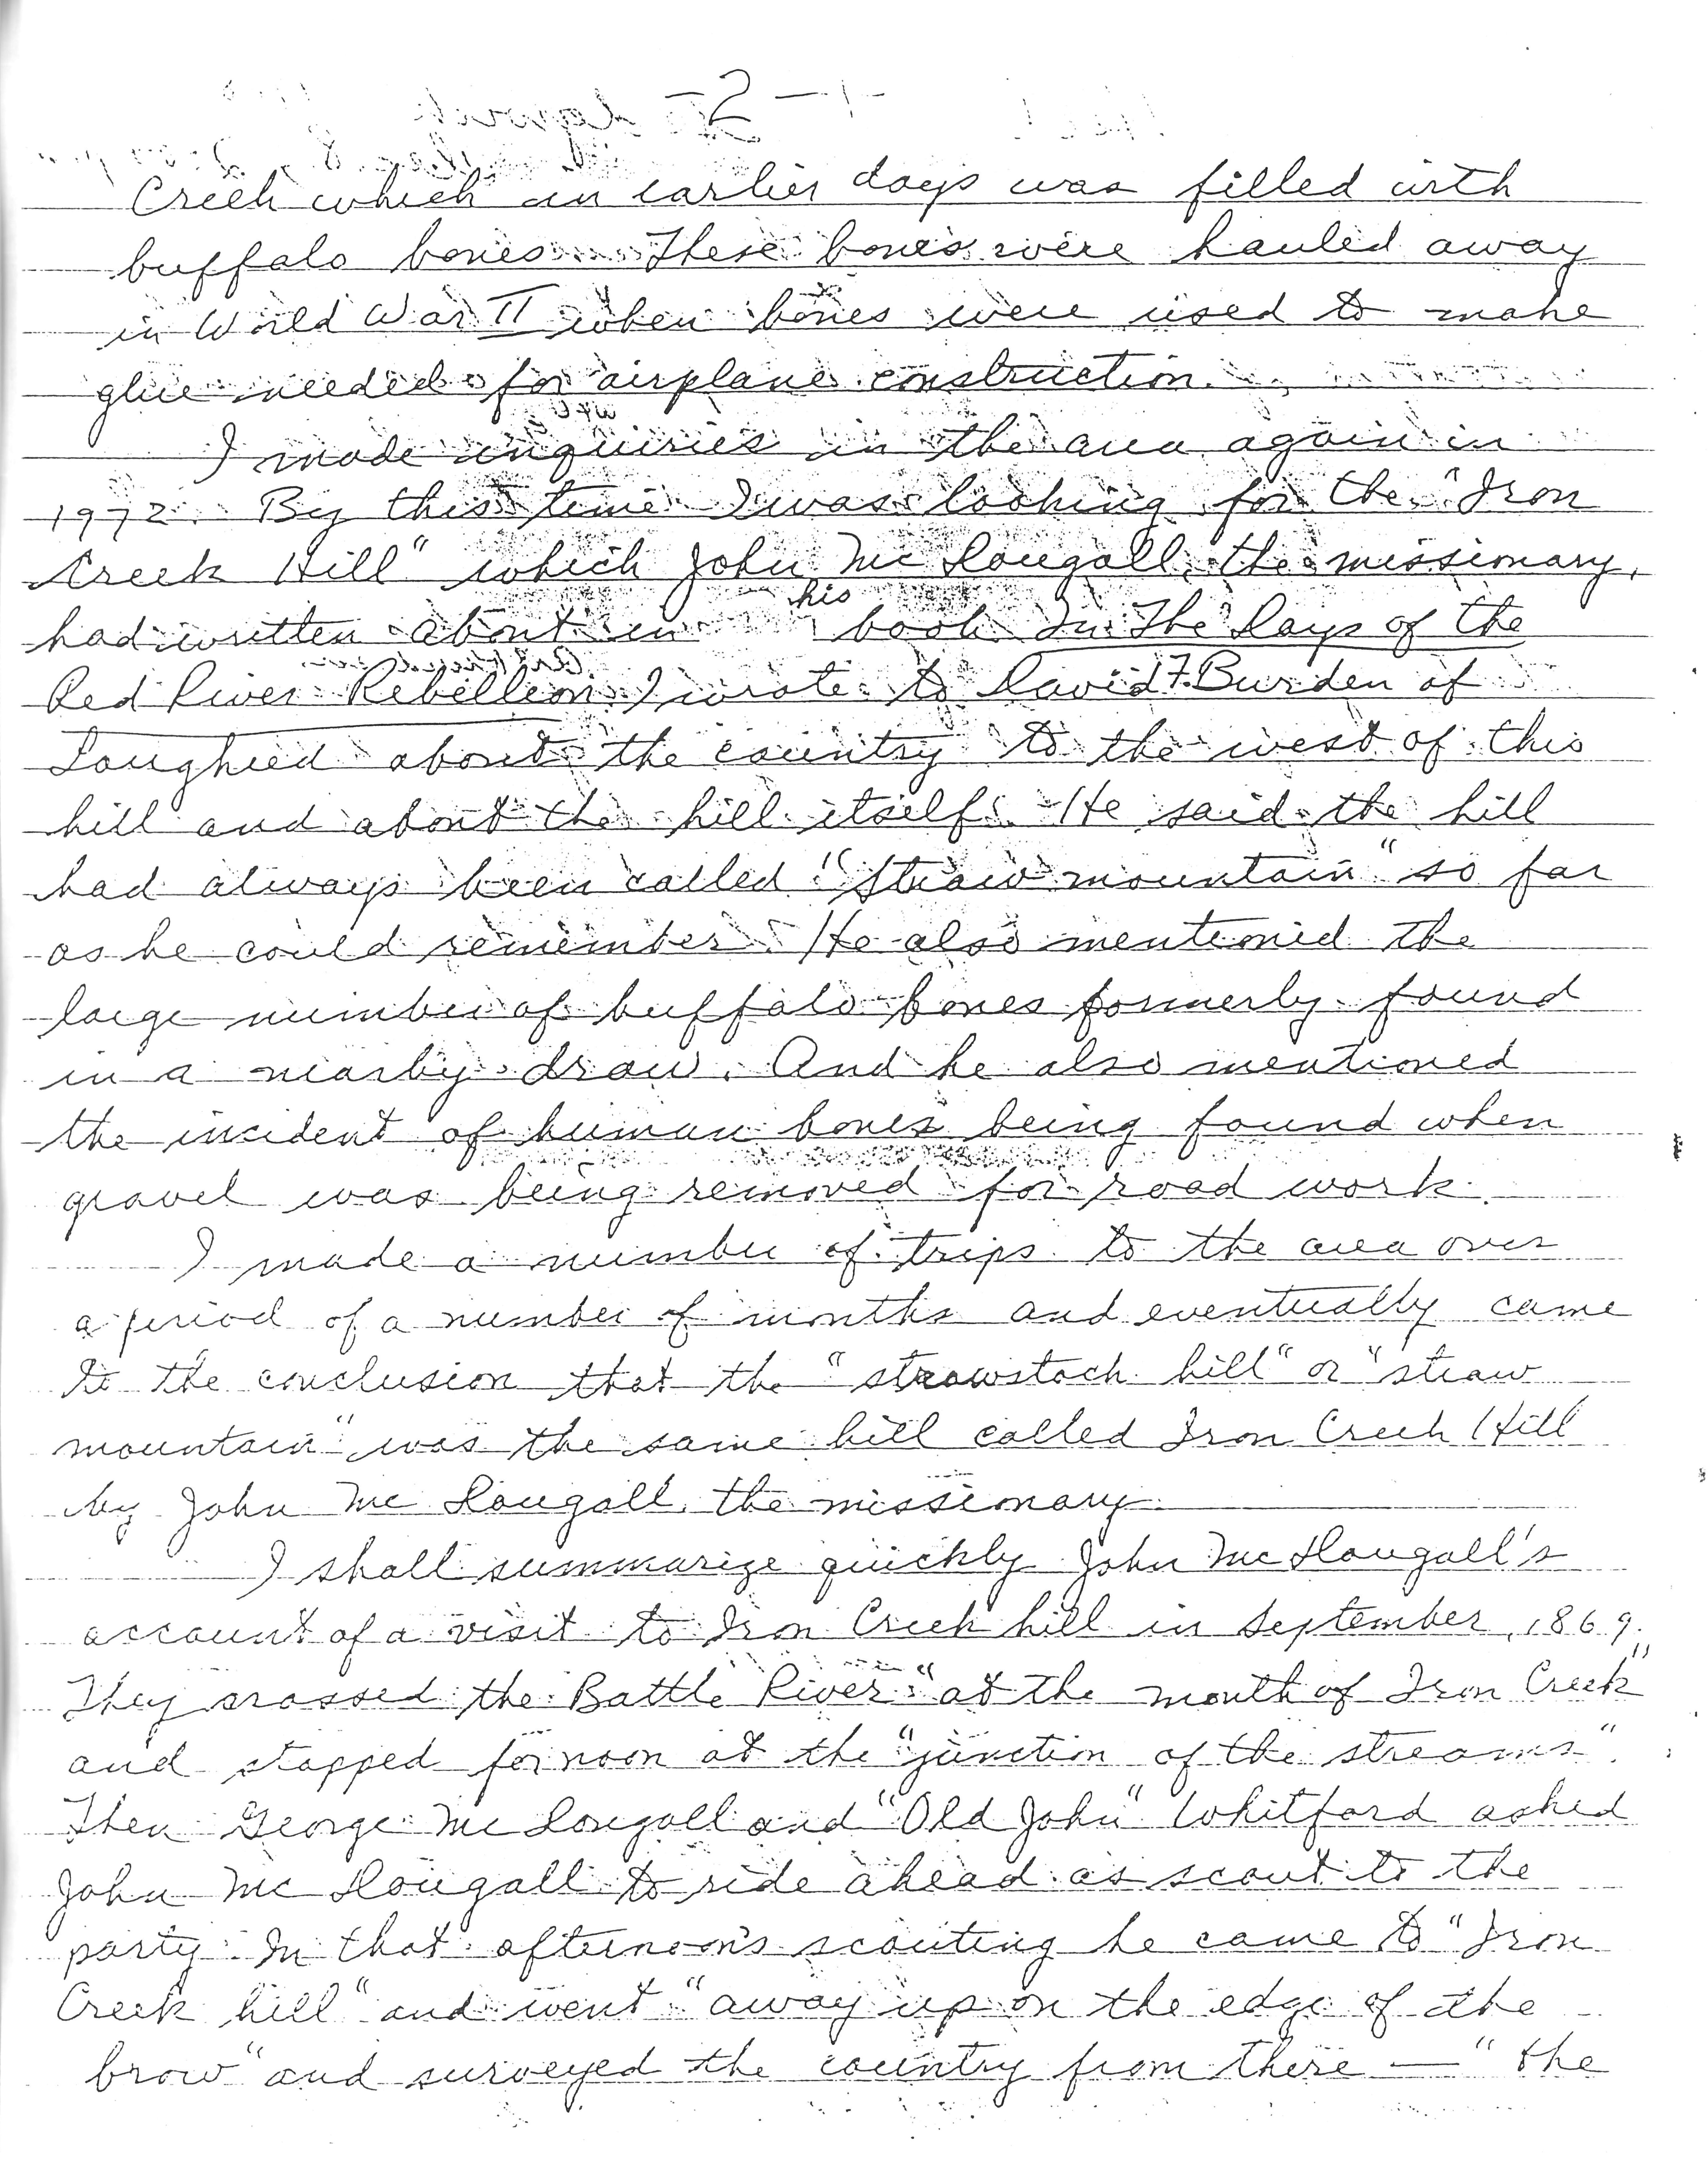 2
Creek which in earlier days was filled with
buffalo bones. These bones were hauled away
in World War II when bones were used to make
glue needed for airplane construction.
I made inquiries in the area again in
1972. By this time I was looking for the "Iron
Creek Hill" which John Mc Dougall, the missionary,
had written about in his book In The Days of the
Red River Rebellion. I wrote to David F. Burden of
Lougheed about the country to the west of this
hill and about the hill itself. He said the hill
had always been called "straw mountain" so far
as he could remember. He also mentioned the
large number of buffalo bones formerly found
in a nearby draw. And he also mentioned
the incident of human bones being found when
gravel was being removed for road work.
I made a number of trips to the area over
a period of a number of months and eventually came
to the conclusion that the "strawstack hill" or "straw
mountain" was the same hill called Iron Creek Hill
by John Mc Dougall, the missionary.
I shall summarize quickly John Mc Dougall's
account of a visit to Iron Creek hill in September, 1869.
They crossed the Battle River "at the mouth of Iron Creek"
and stopped for noon at the "junction of the streams".
Then George Mc Dougall and "Old John" Whitford asked
John Mc Dougall to ride ahead as scout to the
party. In that afternoon's scouting he came to "Iron
Creek hill" and went "away up on the edge of the
brow" and surveyed the country from there — "the